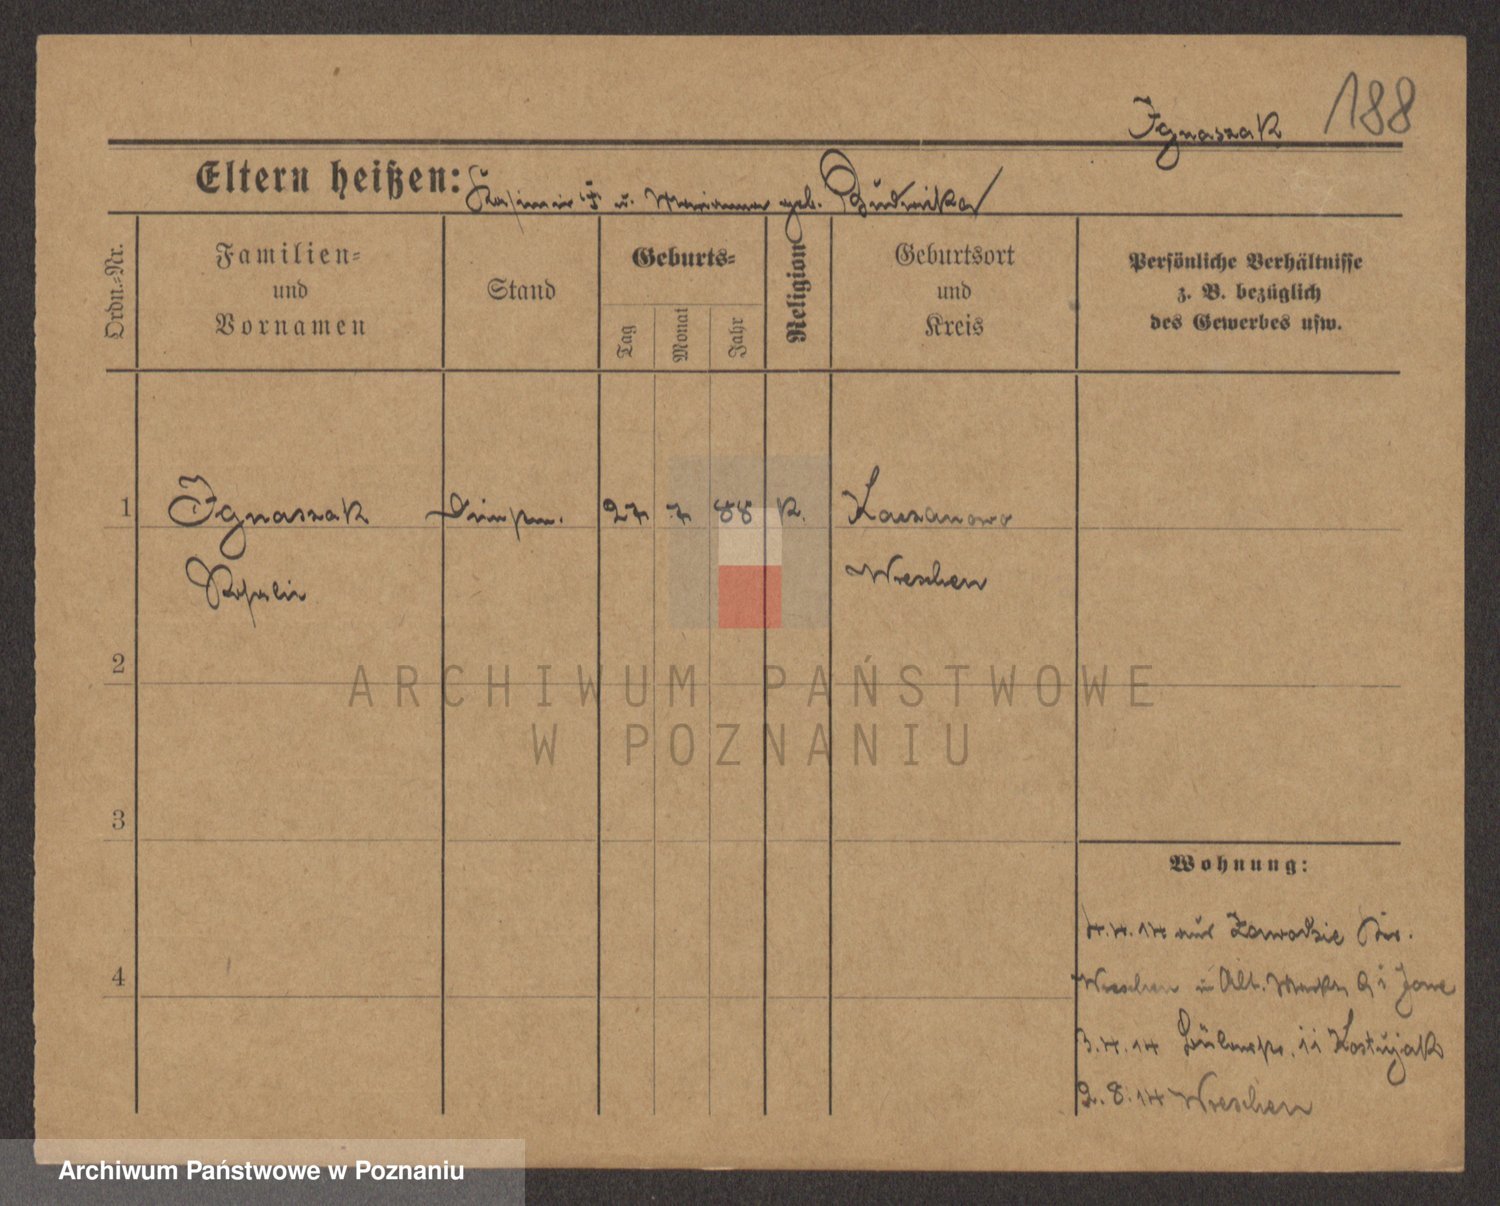 188
Ignaszak
Eltern heißen: Kasimir † u. Marianna geb. Budnika
Ordn.-Nr.
Familien-
und
Vornamen
Stand
Geburts-
Tag
Monat
Jahr
Religion
Geburtsort
und
Kreis
Persönliche Verhältnisse
z. B. bezüglich
des Gewerbes usw.
1 Ignaszak 27 7 88 K. Kaczanowo
Rosalie Wreschen
2
ARCHIWUM PAŃSTWOWE
W POZNANIU
3
Wohnung:
4.4.14 aus Zawodzie Kr.
4
Wreschen Alt. Markt
3.4.14 Kostujak
2.8.14 Wreschen
Archiwum Państwowe w Poznaniu